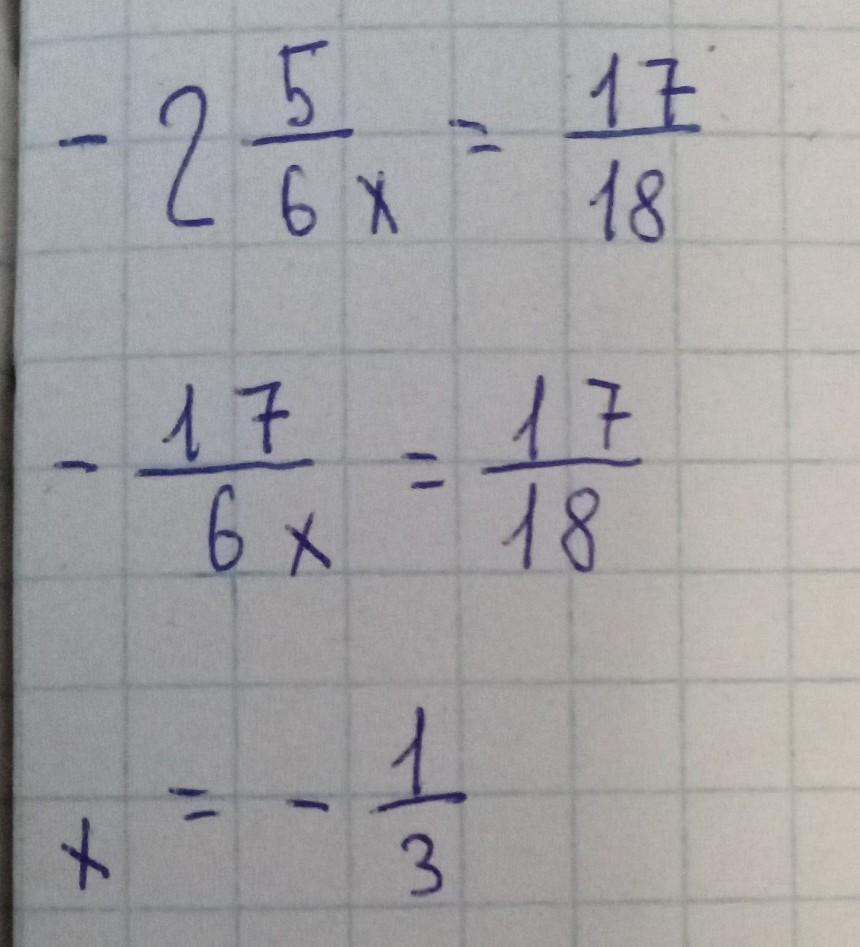 - 2 5/6 x = 17/18
- 17/6 x = 17/18
x = - 1/3